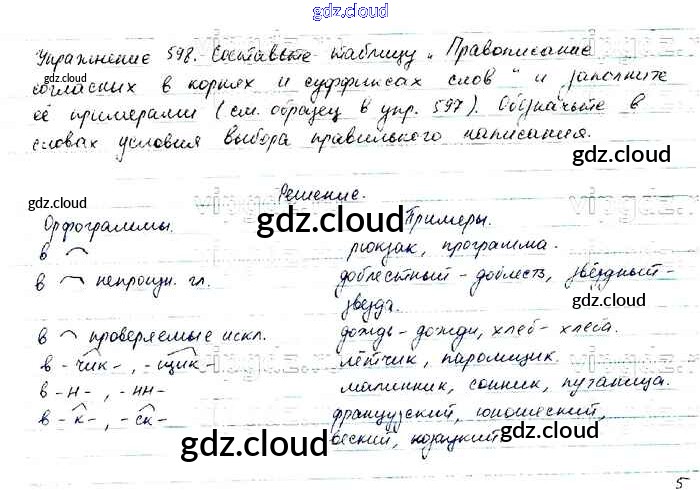 gdz.cloud
Упражнение 598. Составьте таблицу „Правописание
согласных в корнях и суффиксах слов“ и заполните
её примерами (см. образец в упр. 597). Обозначьте в
словах условия выбора правильного написания.
gdz.cloud
gdz.cloud
gdz.cloud
Решение.
gdz.cloud
gdz.cloud
Орфограммы. Примеры.
в рюкзак, программа.
в непроизн. гл. доблестный - доблесть, звёздный-
звезда.
gdz.cloud
в проверяемые искл. дождь - дожди, хлеб - хлеба.
в - чик - , - щик - лётчик, паромщик.
в - н - , - нн - малинник, сонник, путаница.
в - к - , - ск - французский, юношеский,
веский, козацкий
gdz.cloud
gdz.cloud
gdz.cloud
5